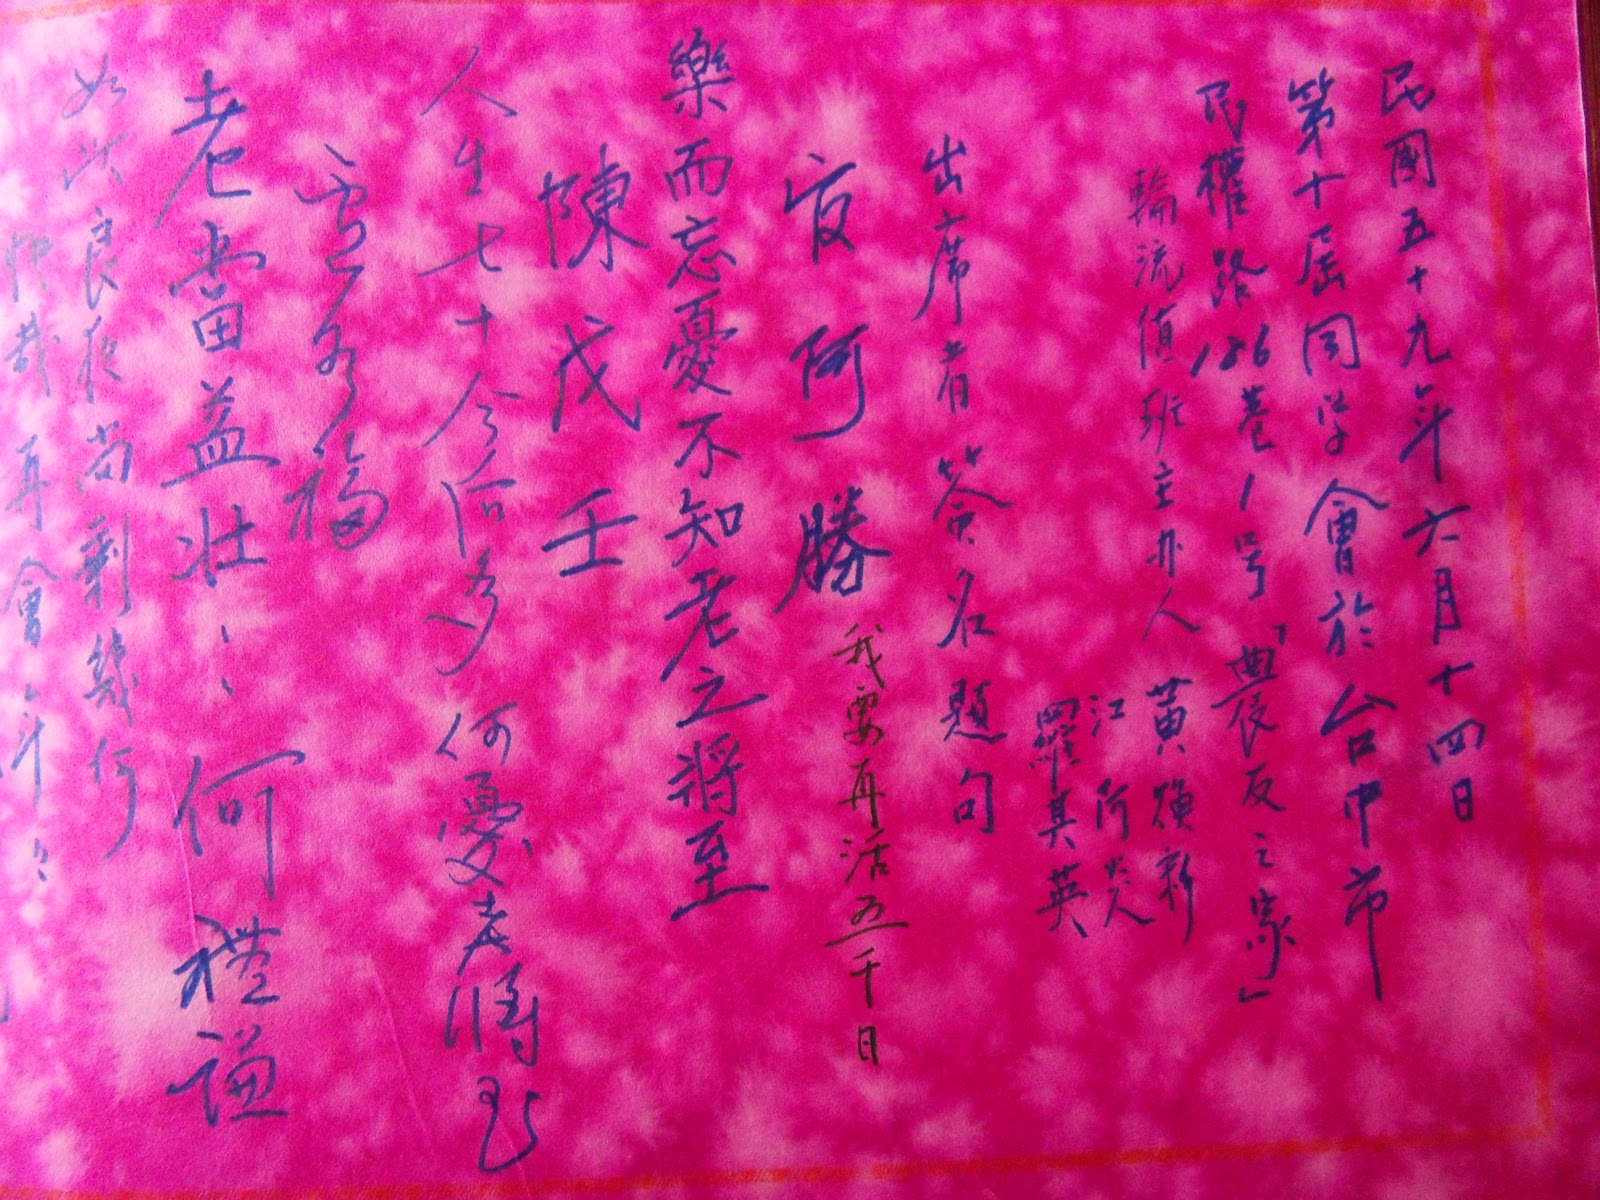 民國五十九年六月十四日
第十屆同学會於台中市
民權路186巷1号「農友之家」
輪流值班主办人 黃煥彩
江阿炎
羅其英
出席者簽名題句
官阿勝 我要再活五千日
樂而忘憂不知老之將至
陳戊壬
人生七十今后多 何憂老將至
福
老當益壯ミミ 何禮謙
如此良夜尚剩幾何
快哉 再會年ミ